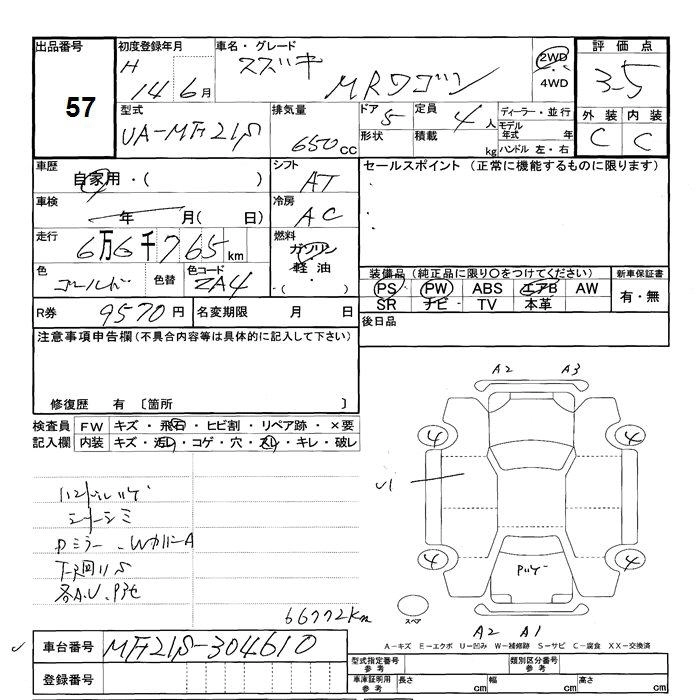 出品番号
57
初度登録年月
H 14年6月
車名・グレード
スズキ MRワゴン
2WD
4WD
評価点
3-5
型式
UA-MF21S
排気量
650cc
ドア
5
形状
定員
4人
積載
kg
ディーラー・並行
モデル年式 年
ハンドル 左・右
外装
C
内装
C
車歴
自家用・( )
シフト
AT
セールスポイント (正常に機能するものに限ります)
車検
年 月( 日)
冷房
AC
走行
6万6千765km
燃料
ガソリン
軽油
・( )
色
ゴールド
色替
色コード
ZA4
装備品(純正品に限り○をつけてください)
PS PW ABS エアB AW
SR ナビ TV 本革
新車保証書
有・無
R券
9570円
名変期限 月 日
後日品
注意事項申告欄(不具合内容等は具体的に記入して下さい)
修復歴 有〔箇所 〕
検査員記入欄
FW キズ・飛石・ヒビ割・リペア跡・×要
内装 キズ・汚レ・コゲ・穴・スレ・キレ・破レ
シートシミ
Dミラー
66772km
A2 A3
4 4
U1
4 4
スペア
A2 A1
A-キズ E-エクボ U-凹み W-補修跡 S-サビ C-腐食 XX-交換済
車台番号
MF21S-304610
登録番号
型式指定番号 参考
類別区分番号 参考
車庫証明用 参考
長さ cm
幅 cm
高さ cm